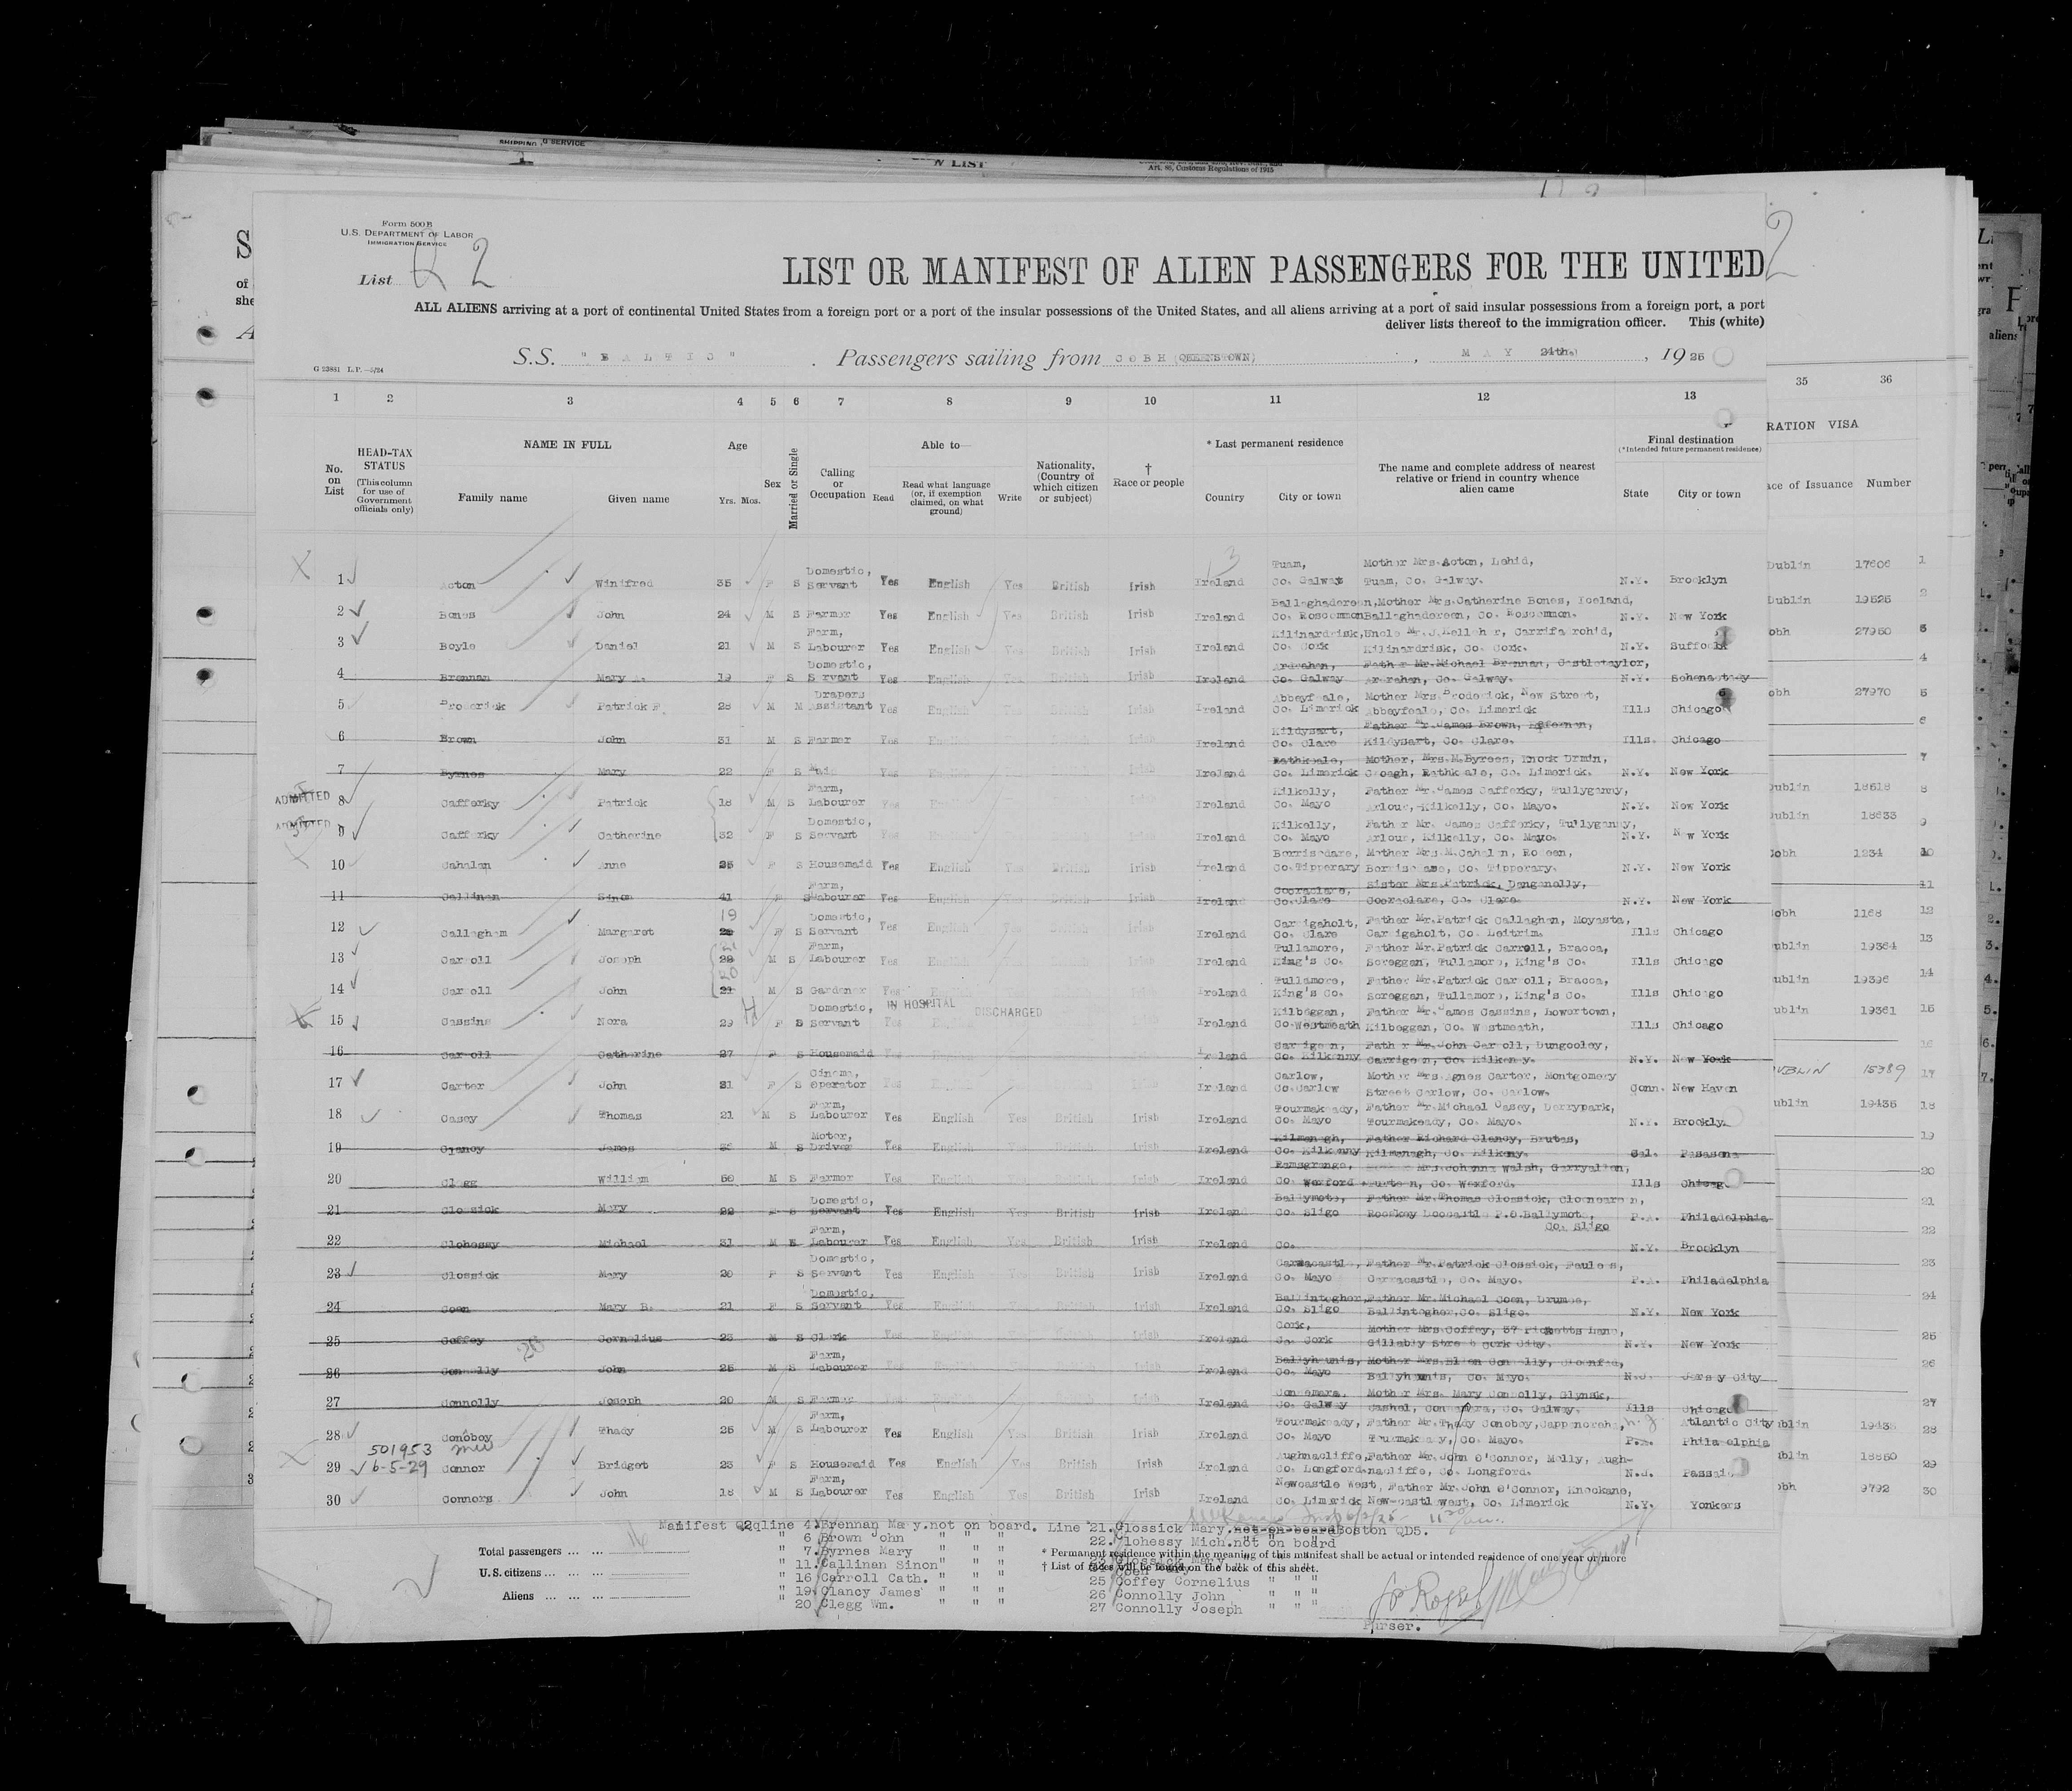 SHIPPING G SERVICE
W LIST
Art. 86, Customs Regulations of 1915
Form 500 B
U.S. DEPARTMENT OF LABOR
IMMIGRATION SERVICE
List Q 2
2
LIST OR MANIFEST OF ALIEN PASSENGERS FOR THE UNITED
ALL ALIENS arriving at a port of continental United States from a foreign port or a port of the insular possessions of the United States, and all aliens arriving at a port of said insular possessions from a foreign port, a port
deliver lists thereof to the immigration officer. This (white)
S.S. "BALTIC" . Passengers sailing from COBH (QUEENSTOWN), MAY 24th, 1925
G 23881 L.P.—5/24
1 2 3 4 5 6 7 8 9 10 11 12 13 35 36
No. on List
HEAD-TAX STATUS (This column for use of Government officials only)
NAME IN FULL Family name Given name
Age Yrs. Mos.
Sex
Married or Single
Calling or Occupation
Able to— Read Read what language (or, if exemption claimed, on what ground) Write
Nationality, (Country of which citizen or subject)
† Race or people
* Last permanent residence Country City or town
The name and complete address of nearest relative or friend in country whence alien came
Final destination (*Intended future permanent residence) State City or town
RATION VISA
ace of Issuance Number
1 Acton Winifred 35 F S Domestic, Servant Yes English Yes British Irish Ireland Tuam, Co. Galway Mother Mrs. Acton, Lehid, Tuam, Co. Galway. N.Y. Brooklyn Dublin 17606 1
2 Bones John 24 M S Farmer Yes English Yes British Irish Ireland Ballaghadereen, Co. Roscommon Mother Mrs. Catherine Bones, Iceland, Ballaghadereen, Co. Roscommon. N.Y. New York Dublin 19525 2
3 Boyle Daniel 21 M S Farm, Labourer Yes English Yes British Irish Ireland Kilinardrisk, Co. Cork Uncle Mr. J. Kelleh r, Kilinardrisk, Co. Cork. N.Y. Suffolk obh 27950
4 Brennan Mary A. 19 F S Domestic, S rvant Yes English Yes British Irish Ireland Ardrahan, Co. Galway Father Mr. Michael Brennan, Castletaylor, Ardrahan, Co. Galway. N.Y. Schenectady 4
5 Broderick Patrick F. 28 M M Drapers Assistant Yes English Ireland Abbeyfeale, Co. Limerick Mother Mrs. Broderick, New Street, Abbeyfeale, Co. Limerick Ills Chicago obh 27970 5
6 Brown John 31 M S Farmer Yes English Irish Ireland Kildysart, Co. Clare Father Mr. James Brown, Effernan, Kildysart, Co. Clare. Ills. Chicago 6
7 Byrnes Mary 22 F S Maid Yes English Irish Ireland Rathkeale, Co. Limerick Mother, Mrs. M. Byrnes, Knock Drmin, Croagh, Rathk ale, Co. Limerick. N.Y. New York 7
ADMITTED
8 Cafferky Patrick 18 M S Farm, Labourer Ireland Kilkelly, Co. Mayo Father Mr. James Cafferky, Tullyganny, Arlour, Kilkelly, Co. Mayo. N.Y. New York Dublin 18618 8
ADMITTED
9 Cafferky Catherine 32 F S Domestic, Servant Ireland Kilkelly, Co. Mayo Father Mr. James Cafferky, Tullyganny, Arlour, Kilkelly, Co. Mayo. N.Y. New York Dublin 18633 9
10 Cahalan Anne 25 F S Housemaid Yes English Yes British Irish Ireland Borrisodare, Co. Tipperary Mother Mrs. M. Cahalan, Co. Tipperary. N.Y. New York obh 1234 10
11 Callinan Sinon 41 F S Farm, Labourer Yes English Yes British Irish Ireland Cooraclare, Co. Clare Sister Mrs. Patrick, Danganelly, Cooraclare, Co. Clare. N.Y. New York 11
12 Callaghan Margaret 19 F S Domestic, Servant Yes English Yes British Irish Ireland Carrigaholt, Co. Clare Father Mr. Patrick Callaghan, Moyasta, Carrigaholt, Co. Leitrim. Ills Chicago obh 1168 12
13 Carroll Joseph 21 M S Farm, Labourer Yes English Irish Ireland Tullamore, King's Co. Father Mr. Patrick Carroll, Bracca, Screggan, Tullamore, King's Co. Ills Chicago ublin 19364 13
14 Car oll John 20 21 M S Gardener Yes Ireland Tullamore, King's Co. Father Mr. Patrick Car oll, Bracca, Screggan, Tullamore, King's Co. Ills Chicago ublin 19396 14
IN HOSPITAL DISCHARGED
15 Cassins Nora 29 F S Domestic, Servant Yes Ireland Kilbeggan, Co. Westmeath Father Mr. James Cassins, Lowertown, Kilbeggan, Co. Westmeath, Ills Chicago ublin 19361 15
16 Car oll Catherine 27 F S Housemaid Ireland Carrigeen, Co. Kilkenny Father Mr. John Car oll, Dungooley, Carrigeen, Co. Kilkenny. N.Y. New York 16
17 Carter John 21 F S Cinema, Operator Ireland Carlow, Co. Carlow Mother Mrs. Agnes Carter, Montgomery Street Carlow, Co. Carlow. Conn. New Haven UBLIN 15389 17
18 Casey Thomas 21 M S Farm, Labourer Yes English Yes British Irish Ireland Tourmakeady, Co. Mayo Father Mr. Michael Casey, Derrypark, Tourmakeady, Co. Mayo. N.Y. Brooklyn ublin 19435 18
19 Clancy James M S Motor, Driver Yes English Yes British Irish Ireland Kilmanagh, Co. Kilkenny Father Richard Clancy, Brutas, Kilmanagh, Co. Kilkenny. Cal. Pasasena 19
20 Cl gg William 50 M S Farmer Yes English Yes British Irish Ireland Ramsgrange, Co. Wexford Mrs. Johanna Walsh, Co. Wexford. Ills Chicago 20
21 Clossick Mary 22 F S Domestic, Servant Yes English Yes British Irish Ireland Ballymote, Co. Sligo Father Mr. Thomas Clossick, P.O. Ballymote, Co. Sligo P.A. Philadelphia 21
22 Clohessy Michael 31 M Farm, Labourer Yes English Yes British Irish Ireland Co. N.Y. Brooklyn 22
23 Clossick Mary 20 F S Domestic, Servant Yes English Yes British Irish Ireland Carracastle, Co. Mayo Father Mr. Patrick Clossick, Carracastle, Co. Mayo. P.A. Philadelphia 23
24 Coen Mary B. 21 F S Domestic, Servant Yes English Yes British Irish Ireland Ballintogher, Co. Sligo Father Mr. Michael Coen, Drumee, Ballintogher, Co. Sligo. N.Y. New York 24
25 Coffey Cornelius 23 M S Clerk Yes English Irish Ireland Cork, Co. Cork Mother Mrs. Coffey, 37 Lane, Cork City. N.Y. New York 25
26 Connolly John 25 M S Farm, Labourer Ireland Ballyhaunis, Co. Mayo Mother Mrs. Ellen Connolly, Ballyhaunis, Co. Mayo. N.J. Jersey City 26
27 Connolly Joseph 20 M S Farmer Ireland Connemara, Co. Galway Mother Mrs. Mary Connolly, Glynsk, Cashel, Connemara, Co. Galway. Ills Chicago 27
28 Conoboy Thady 25 M S Farm, Labourer Yes English Yes British Irish Ireland Tourmakeady, Co. Mayo Father Mr. Thady Conoboy, Tourmakeady, Co. Mayo. N.J. Atlantic City P.A. Philadelphia blin 28
501953
29 6-5-29 Connor Bridget 23 F S Housemaid Yes English Yes British Irish Ireland Aughnacliffe, Co. Longford Father Mr. John O'Connor, Molly, Aughnacliffe, Co. Longford. N.J. Passaic blin 18850 29
30 Connors John 18 M S Farm, Labourer Yes English Yes British Irish Ireland Newcastle West, Co. Limerick Father Mr. John O'Connor, Knockane, Newcastle west, Co. Limerick N.Y. Yonkers obh 9792 30
Manifest Q2 line 4. Brennan Mary. not on board. Line 21. Clossick Mary. not on board Boston QD5.
" 6 Brown John " " " 22. Clohessy Mich. not on board
" 7. Byrnes Mary " " "
" 11 Callinan Sinon " " "
" 16 Carroll Cath. " " " 25 Coffey Cornelius " " "
" 19 Clancy James " " " 26 Connolly John " " "
" 20 Clegg Wm. " " " 27 Connolly Joseph " " "
Total passengers ... ... 16
U.S. citizens ... ... ...
Aliens ... ... ...
* Permanent residence within the meaning of this manifest shall be actual or intended residence of one year or more
† List of races will be found on the back of this sheet.
Purser.